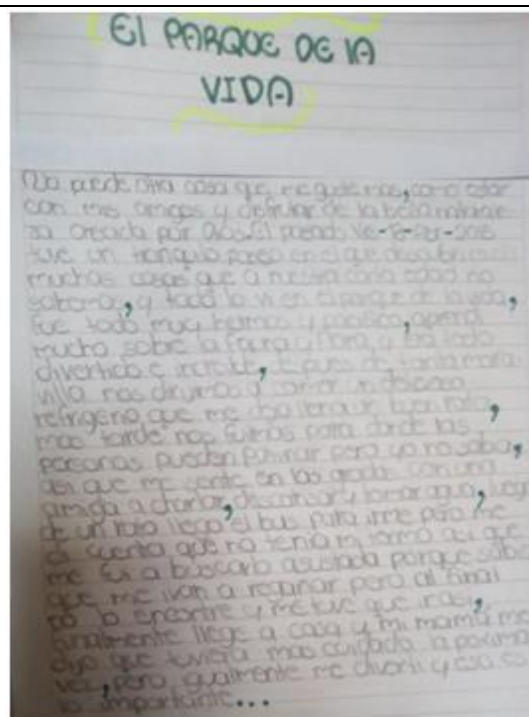 El PARQUE DE lA
VIDA
No puede otra cosa que me guste mas, como estar
con mis amigos y disfrutar de la bella naturale
za creada por dios. El pasado
tuve un tranquilo paseo en el que descubri
muchas cosas que a nuestra corta edad no
sabemos, y todo lo vi en el parque de la vida,
fue todo muy hermoso y , aprendi
mucho sobre la fauna y flora, y fue todo
divertido e increible, de tanta mara
villa nos a comer un delicioso
refrigerio que me dejo llena un buen rato,
mas tarde nos fuimos para donde las
personas pueden patinar pero yo no sabia,
asi que me sente en las gradas con una
amiga a charlar, descansar y tomar agua, luego
de un rato llego el bus para irme pero me
di cuenta que no tenia mi termo asi que
me fui a buscarlo asustada porque sabia
que me ivan a regañar pero al final
no lo encontre y me tuve que ir asi,
finalmente llege a casa y mi mamá me
dijo que tuviera mas cuidado la proxima
vez, pero igualmente me diverti y eso es
lo importante...